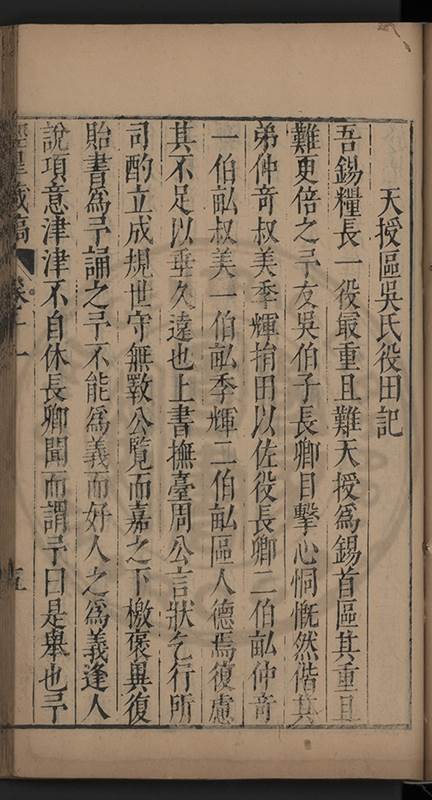 天授區吳氏役田記
吾錫糧長一役最重且難天授爲錫首區其重且
難更倍之予友吳伯子長卿目擊心恫慨然偕其
弟仲竒叔美季輝捐田以佐役長卿二伯畝仲竒
一伯畝叔美一伯畝季輝二伯畝區人德焉復慮
其不足以垂久遠也上書撫臺周公言狀乞行所
司酌立成規世守無斁公覽而嘉之下檄褒異復
貽書爲予誦之予不能爲義而好人之爲義逢人
說項意津津不自休長卿聞而謂予曰是舉也予
涇臯藏稿 卷十一 五